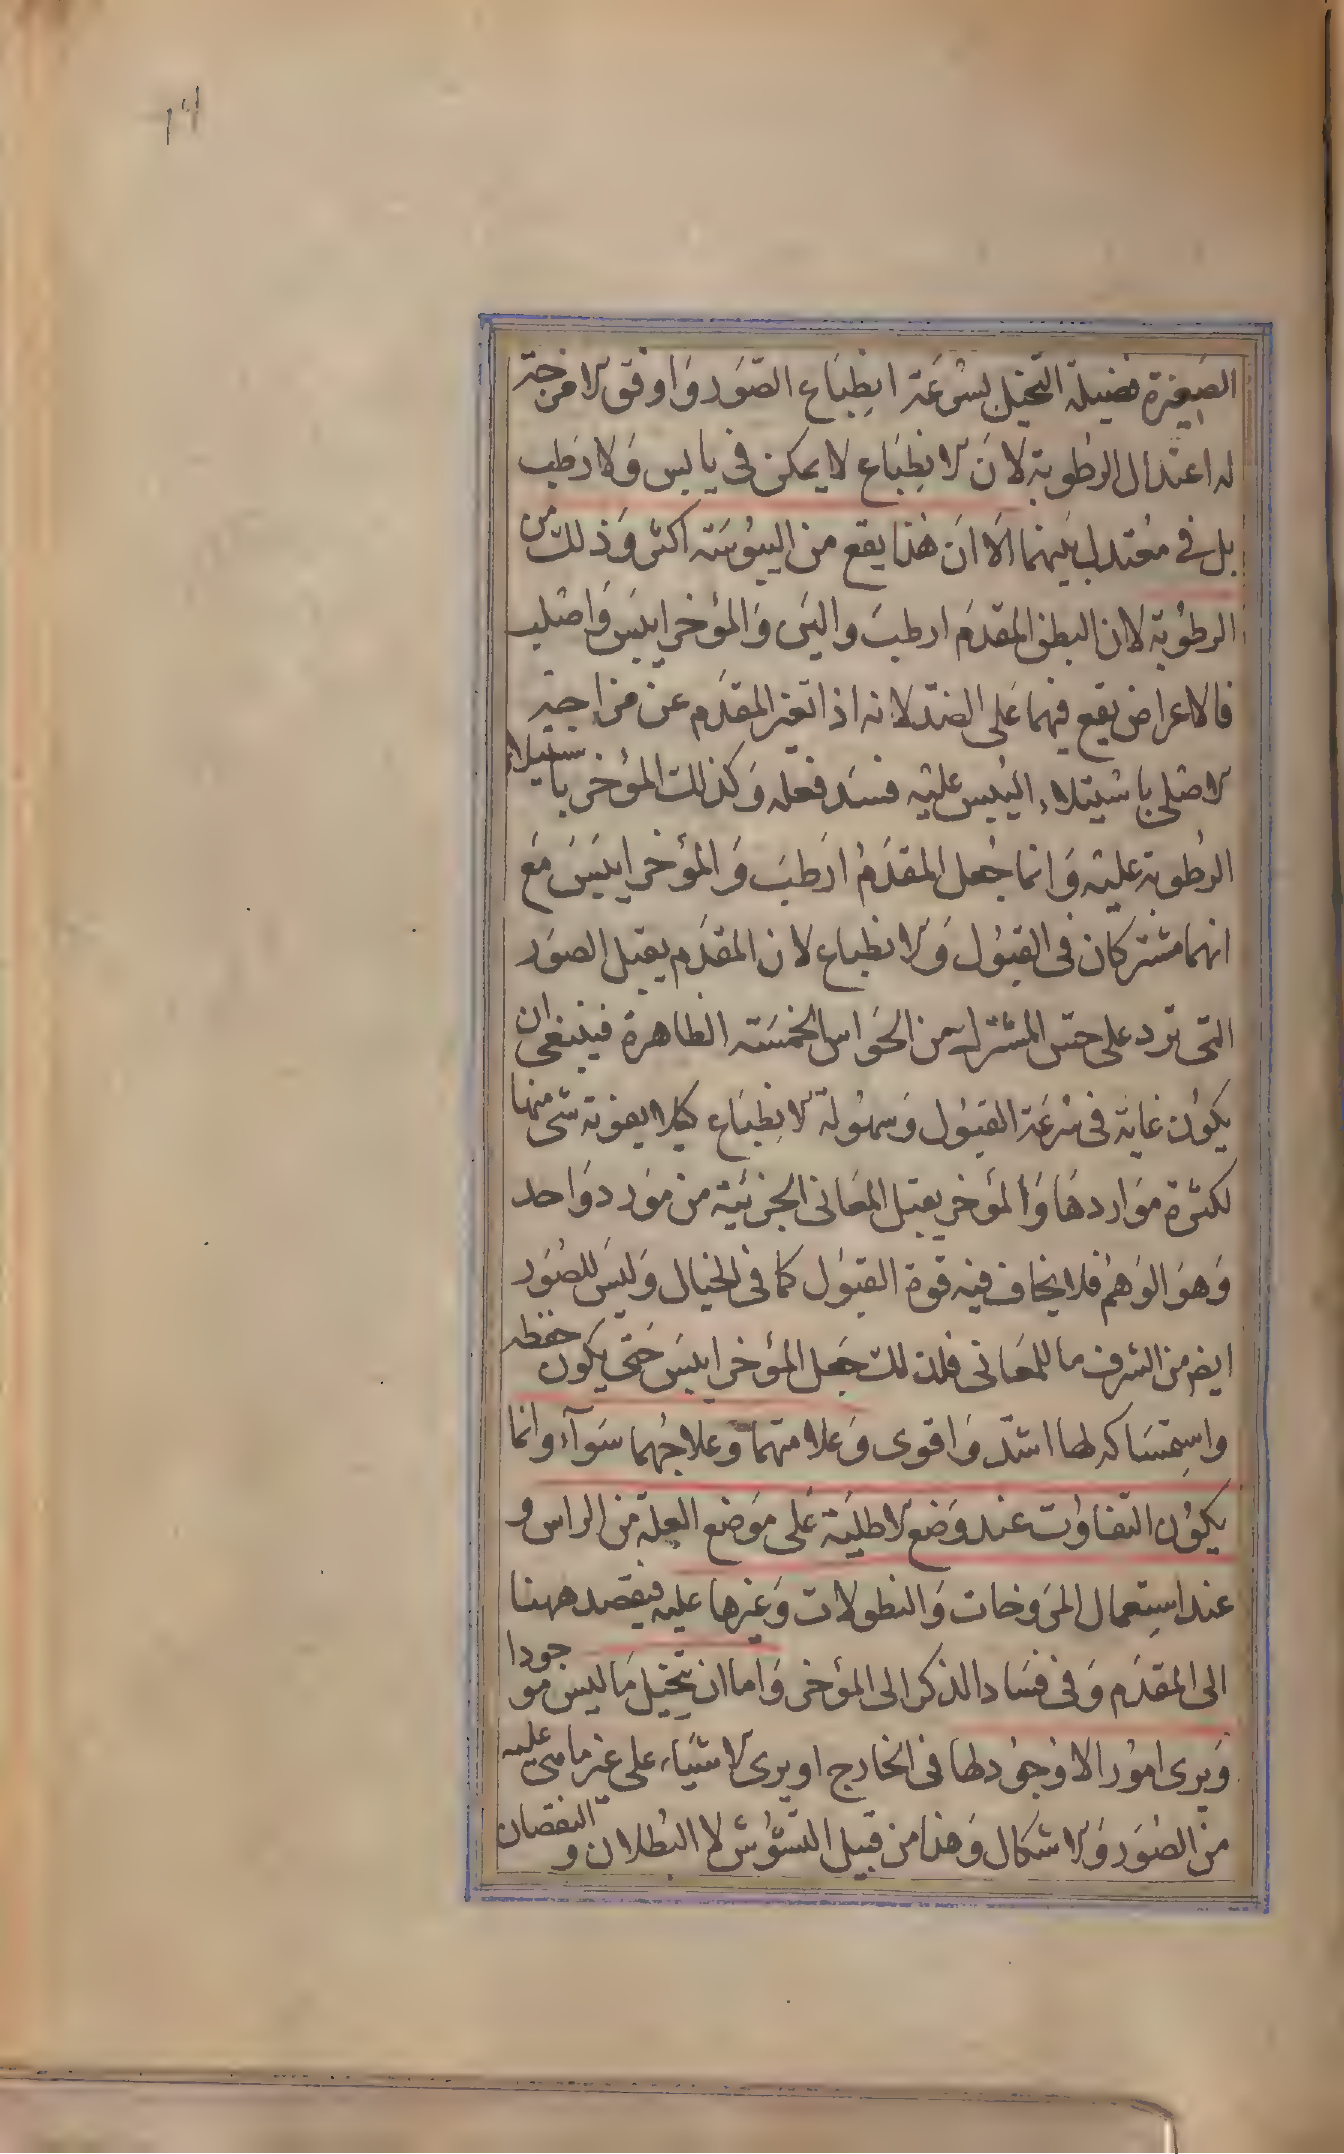 الصغيرة فضيلة التخيل لسُرعَة انطِبَاع الصّوَر وَاوفق الامزجة
له اعتدال الرطوبة لانَ الانطِبَاع لا يمكن فى يابس وَلا رَطب
بل فى معُتدل بينهما الَا انَ هٰذا يقع من اليبوُسَته اكثر وَذلك من
الرطوُبة لان البطن المقدَم ارطبَ والين وَالمؤخر ايبسَ وَاصلب
فالاعراض يقع فيهما عَلى الضدّ لانه اذا تغير المقدَم عن مزاجه
الاصْلى باستيلاء اليُبس عليْه فسَد فعله وَكذلك المؤخر باستيلاء
الرطُوبة عليْه وَانما جُعل المقدَمُ ارَطبَ وَالمؤخر ايبَسَ مَع
انهما مشتركان فى القبوُل وَالانطباع لان المقدَم يقبل الصوَر
التى ترد على حسّ المشترك من الحَواس الخمسَته الظاهرة فينبغى ان
يكوُن غاية فى سُرعَة القبوُل وَسهوُلة الانطِبَاع كيلا يفوته شى منها
لكثرة موَاردهَا وَالمؤخر يقبل المعَانى الجزئية من موَرد وَاحد
وَهوَ الوَهمُ فلا يخاف فيه قوة القبوُل كما فى الخيال وَليسَ للصُوَر
ايضـ من الشرف ما للمعَانى فلذلك جَعل المؤخر ايبسَ حَتى يكون حفظه
واسِتمسَاكه لها اشدّ وَاقوى وَعلامتهما وعلاجُهما سَوآء وانما
يكوُن التفاوُت عند وَضع الاطليَة عَلى موَضع العلة من الراس و
عند اسِتعمال المرَوخات وَالنطولات وَغيرها عليه فيقصد ههنا
الى المقدَم وَفى فسَاد الذكر الى المؤخر وَاما ان يتَخيل مَا ليس موجودا
وَيرى اموُرا لا وَجوُد لها فى الخارج او يرى الاشيَاء على غير ما هى عليه
من الصُوَر وَالاشكال وَهذا من قبيل التشوّش لا البُطلان و النقصان